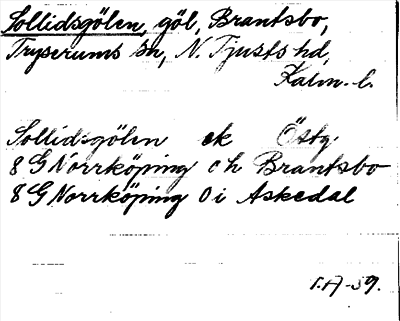 Sollidsgölen, göl, Brantsbo,
Tryserums sn, N. Tjusts hd,
Kalm. l.
Sollidsgölen ek Östg.
8 G Norrköping c h Brantsbo
8 G Norrköping 0 i Askedal
I.A-59.